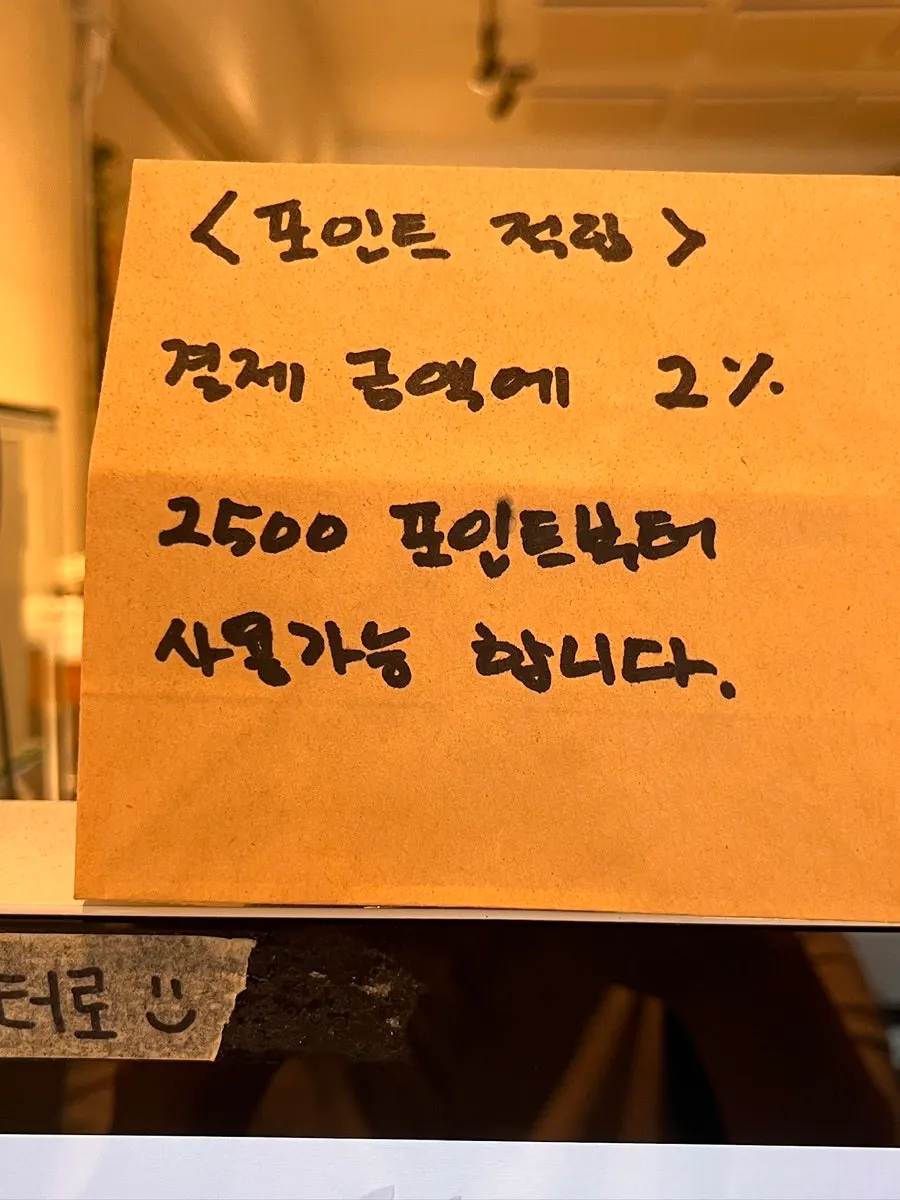 <포인트 적립>
결제 금액에 2%
2500 포인트부터
사용가능 합니다.
터로